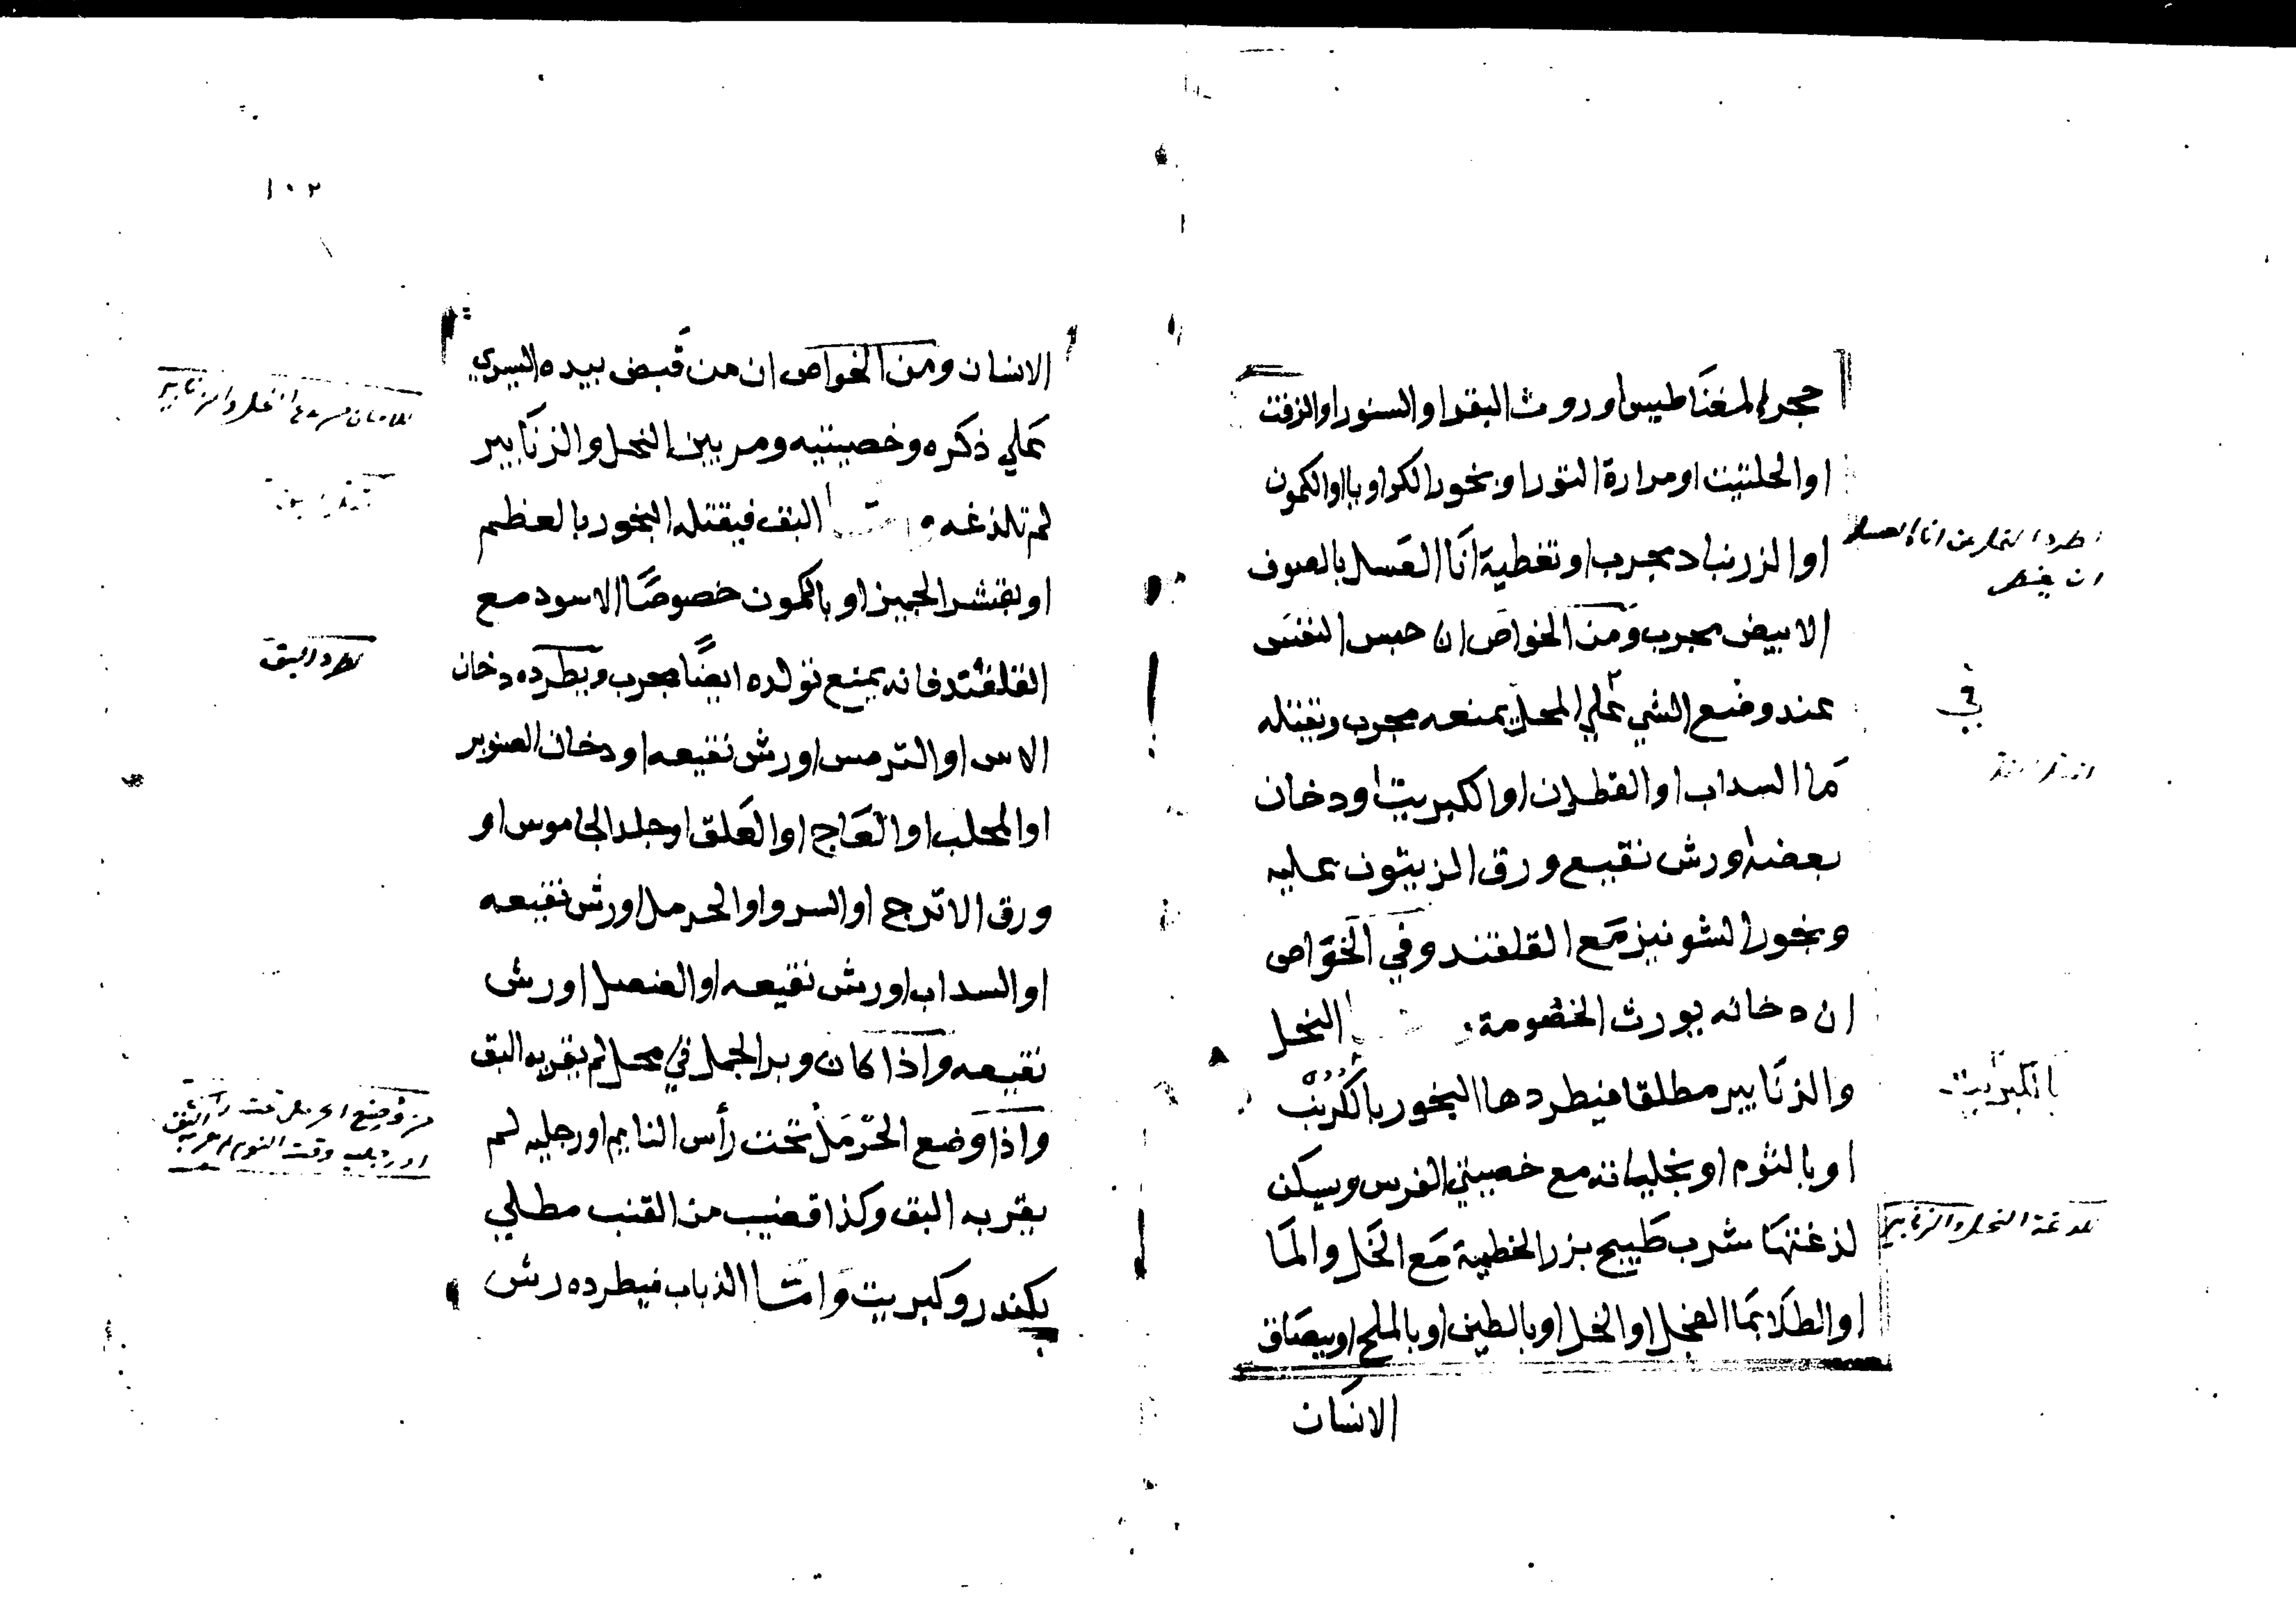 حجر المغناطيس او روث البقر او السنور او الزفت
او الحلتيت او مرارة الثور او بخور الكراويا او الكمون
او الزرنباد مجرب او تغطية انا العسل بالصوف
الابيض مجرب ومن الخواص ان حبس النفس
عند وضع الشي علي المحل يمنعه مجرب ويقتله
ما السداب او القطران او الكبريت او دخان
بعضها ورش نقيع ورق الزيتون عليه
وبخور الشونيز مع القلقند وفي الخواص
ان دخانه يورث الخصومة النحل
والزنابير مطلقا فيطردها البخور بالكرنب
او بالثوم او بخليانه مع خصيتي الفرس ويسكن
لذغتها شرب طبيح بزر الخطمية مع الخل والما
او الطلا بما الفجل او الخل او بالطين او بالملح او ببصاق
الانسان
اطرد النمل عن انا العسل
في
بالكبريت
للدغة النحل والزنابير
١٠٢
الانسان ومن الخواص ان من قبض بيده اليسري
علي ذكره وخصيتيه ومر بين النحل والزنابير
لم تلذغه البق فيقتله البخور بالعظم
او بقشر الجميز او بالكمون خصوصا الاسود مع
القلقند فانه يمنع تولده ايضا مجرب ويطرده دخان
الاس او الترمس او رش نقيعه او دخان الصنوبر
او المحلب او العاج او العلق او جلد الجاموس او
ورق الاترج او السرو او الحرمل او رش نقيعه
او السداب او رش نقيعه او العنصل او رش
نقيعه واذا كان وبر الجمل في محل لم يقربه البق
واذا وضع الحرمل تحت رأس النايم او رجليه لم
يقربه البق وكذا قضيب من القنب مطلي
بكندر وكبريت واما الذباب فيطرده رش
للامان من لدغ النحل والزنابير
لطرد البق